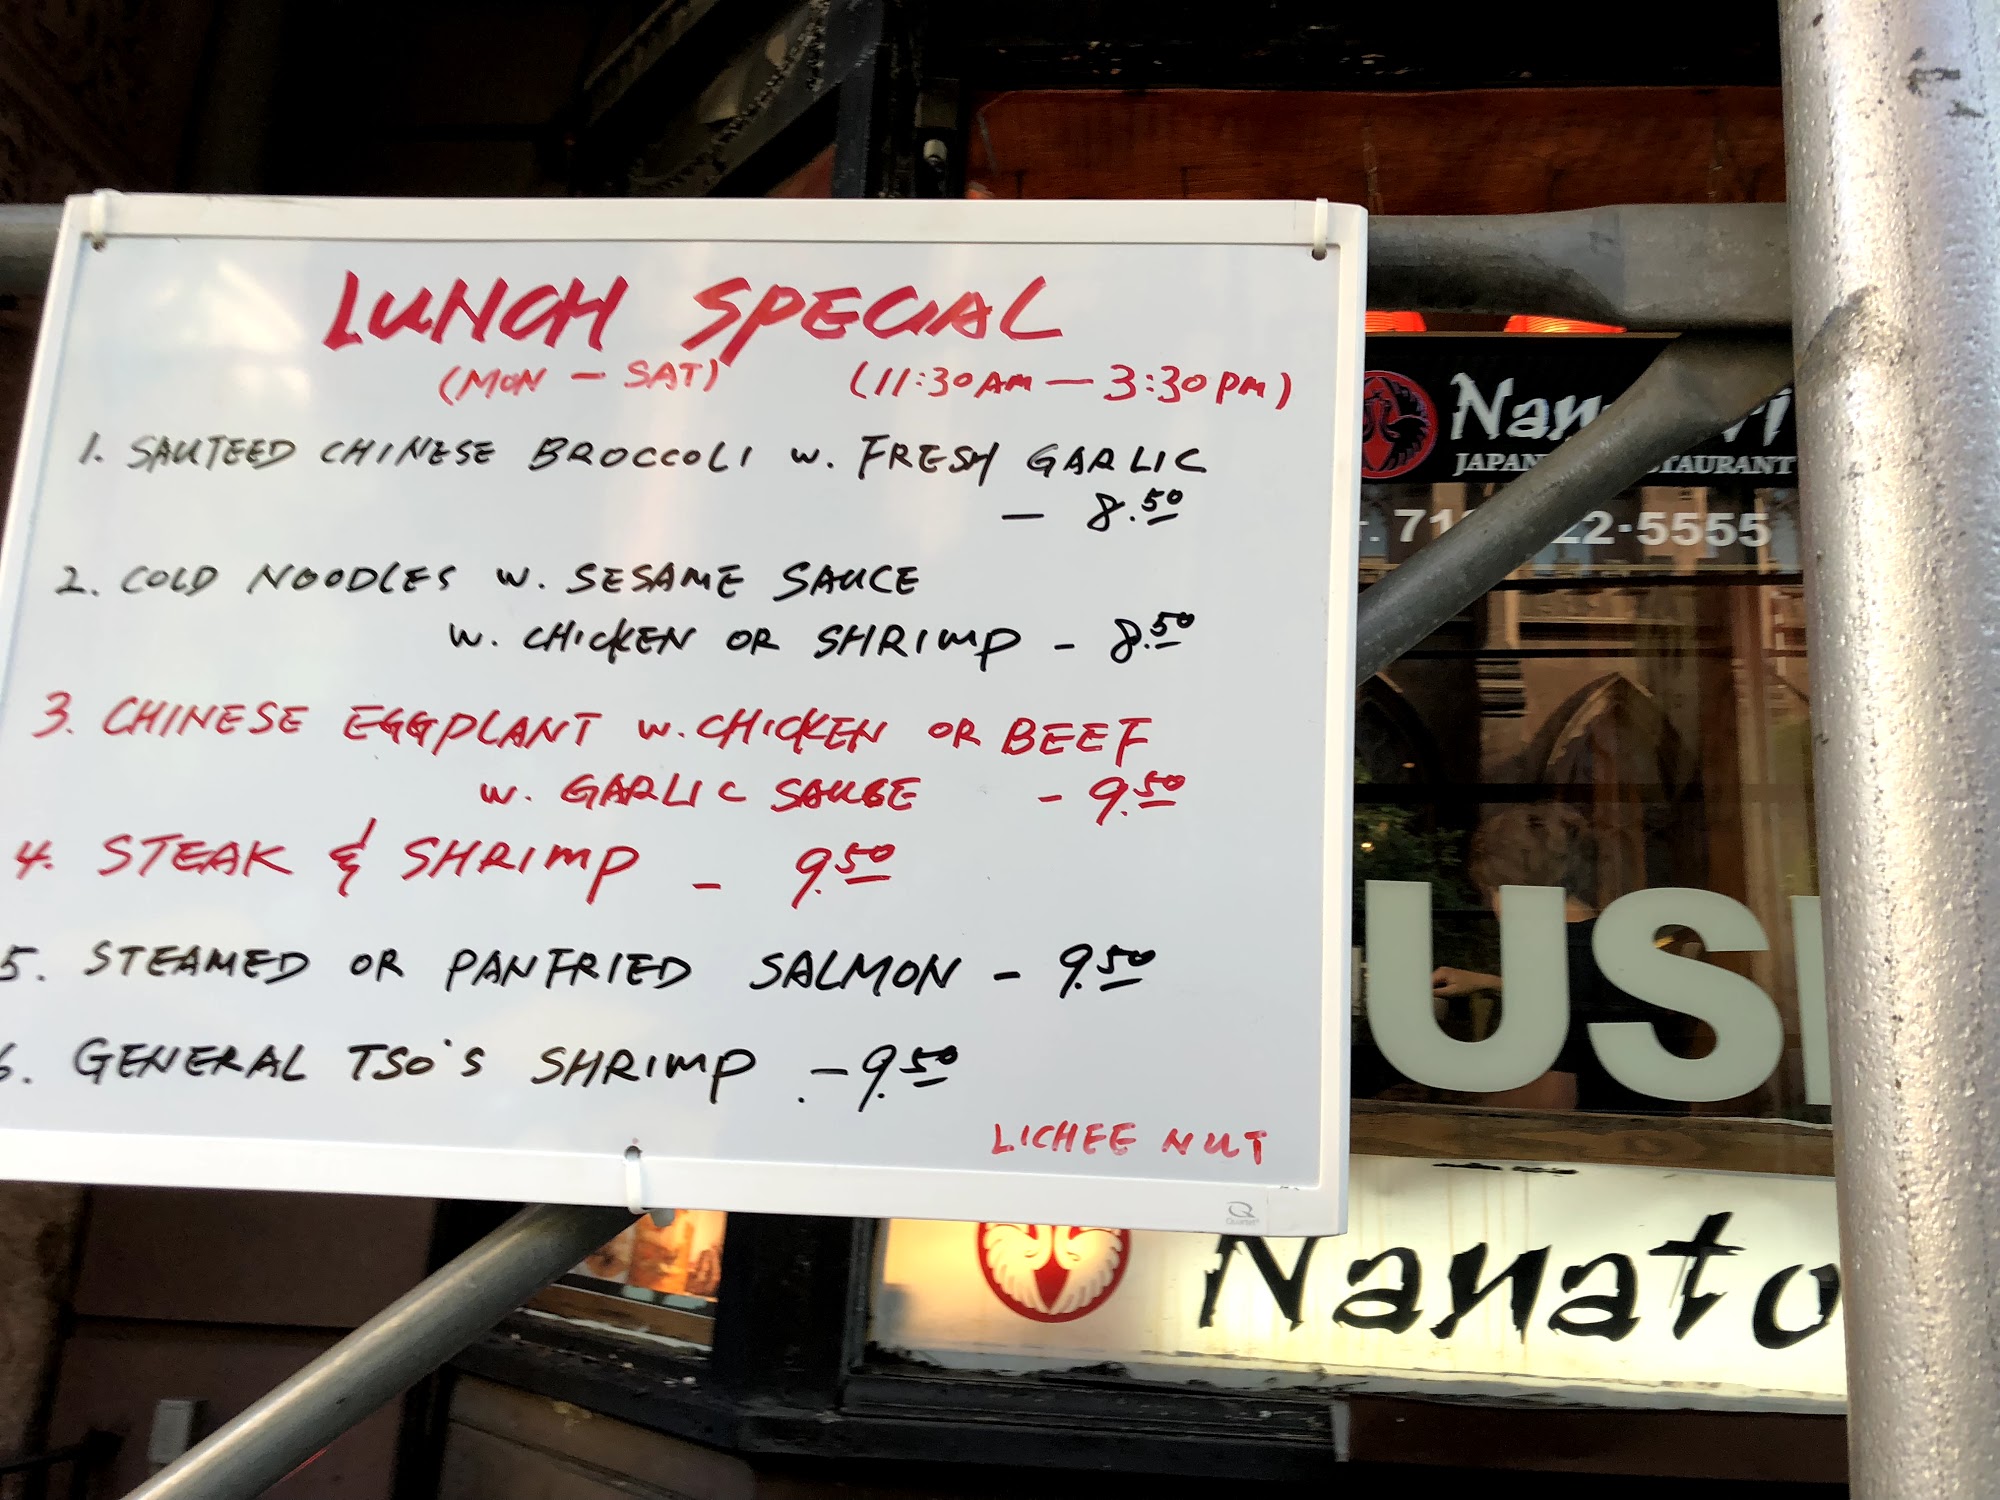 LUNCH SPECIAL
(MON – SAT) (11:30AM — 3:30PM)
1. SAUTEED CHINESE BROCCOLI w. FRESH GARLIC
— 8.50
2. COLD NOODLES w. SESAME SAUCE
w. CHICKEN OR SHRIMP - 8.50
3. CHINESE EGGPLANT w. CHICKEN OR BEEF
w. GARLIC SAUCE - 9.50
4. STEAK & SHRIMP - 9.50
5. STEAMED OR PANFRIED SALMON - 9.50
6. GENERAL TSO'S SHRIMP - 9.50
LICHEE NUT
Quartet
JAPAN
STAURANT
22·5555
US
Nanato